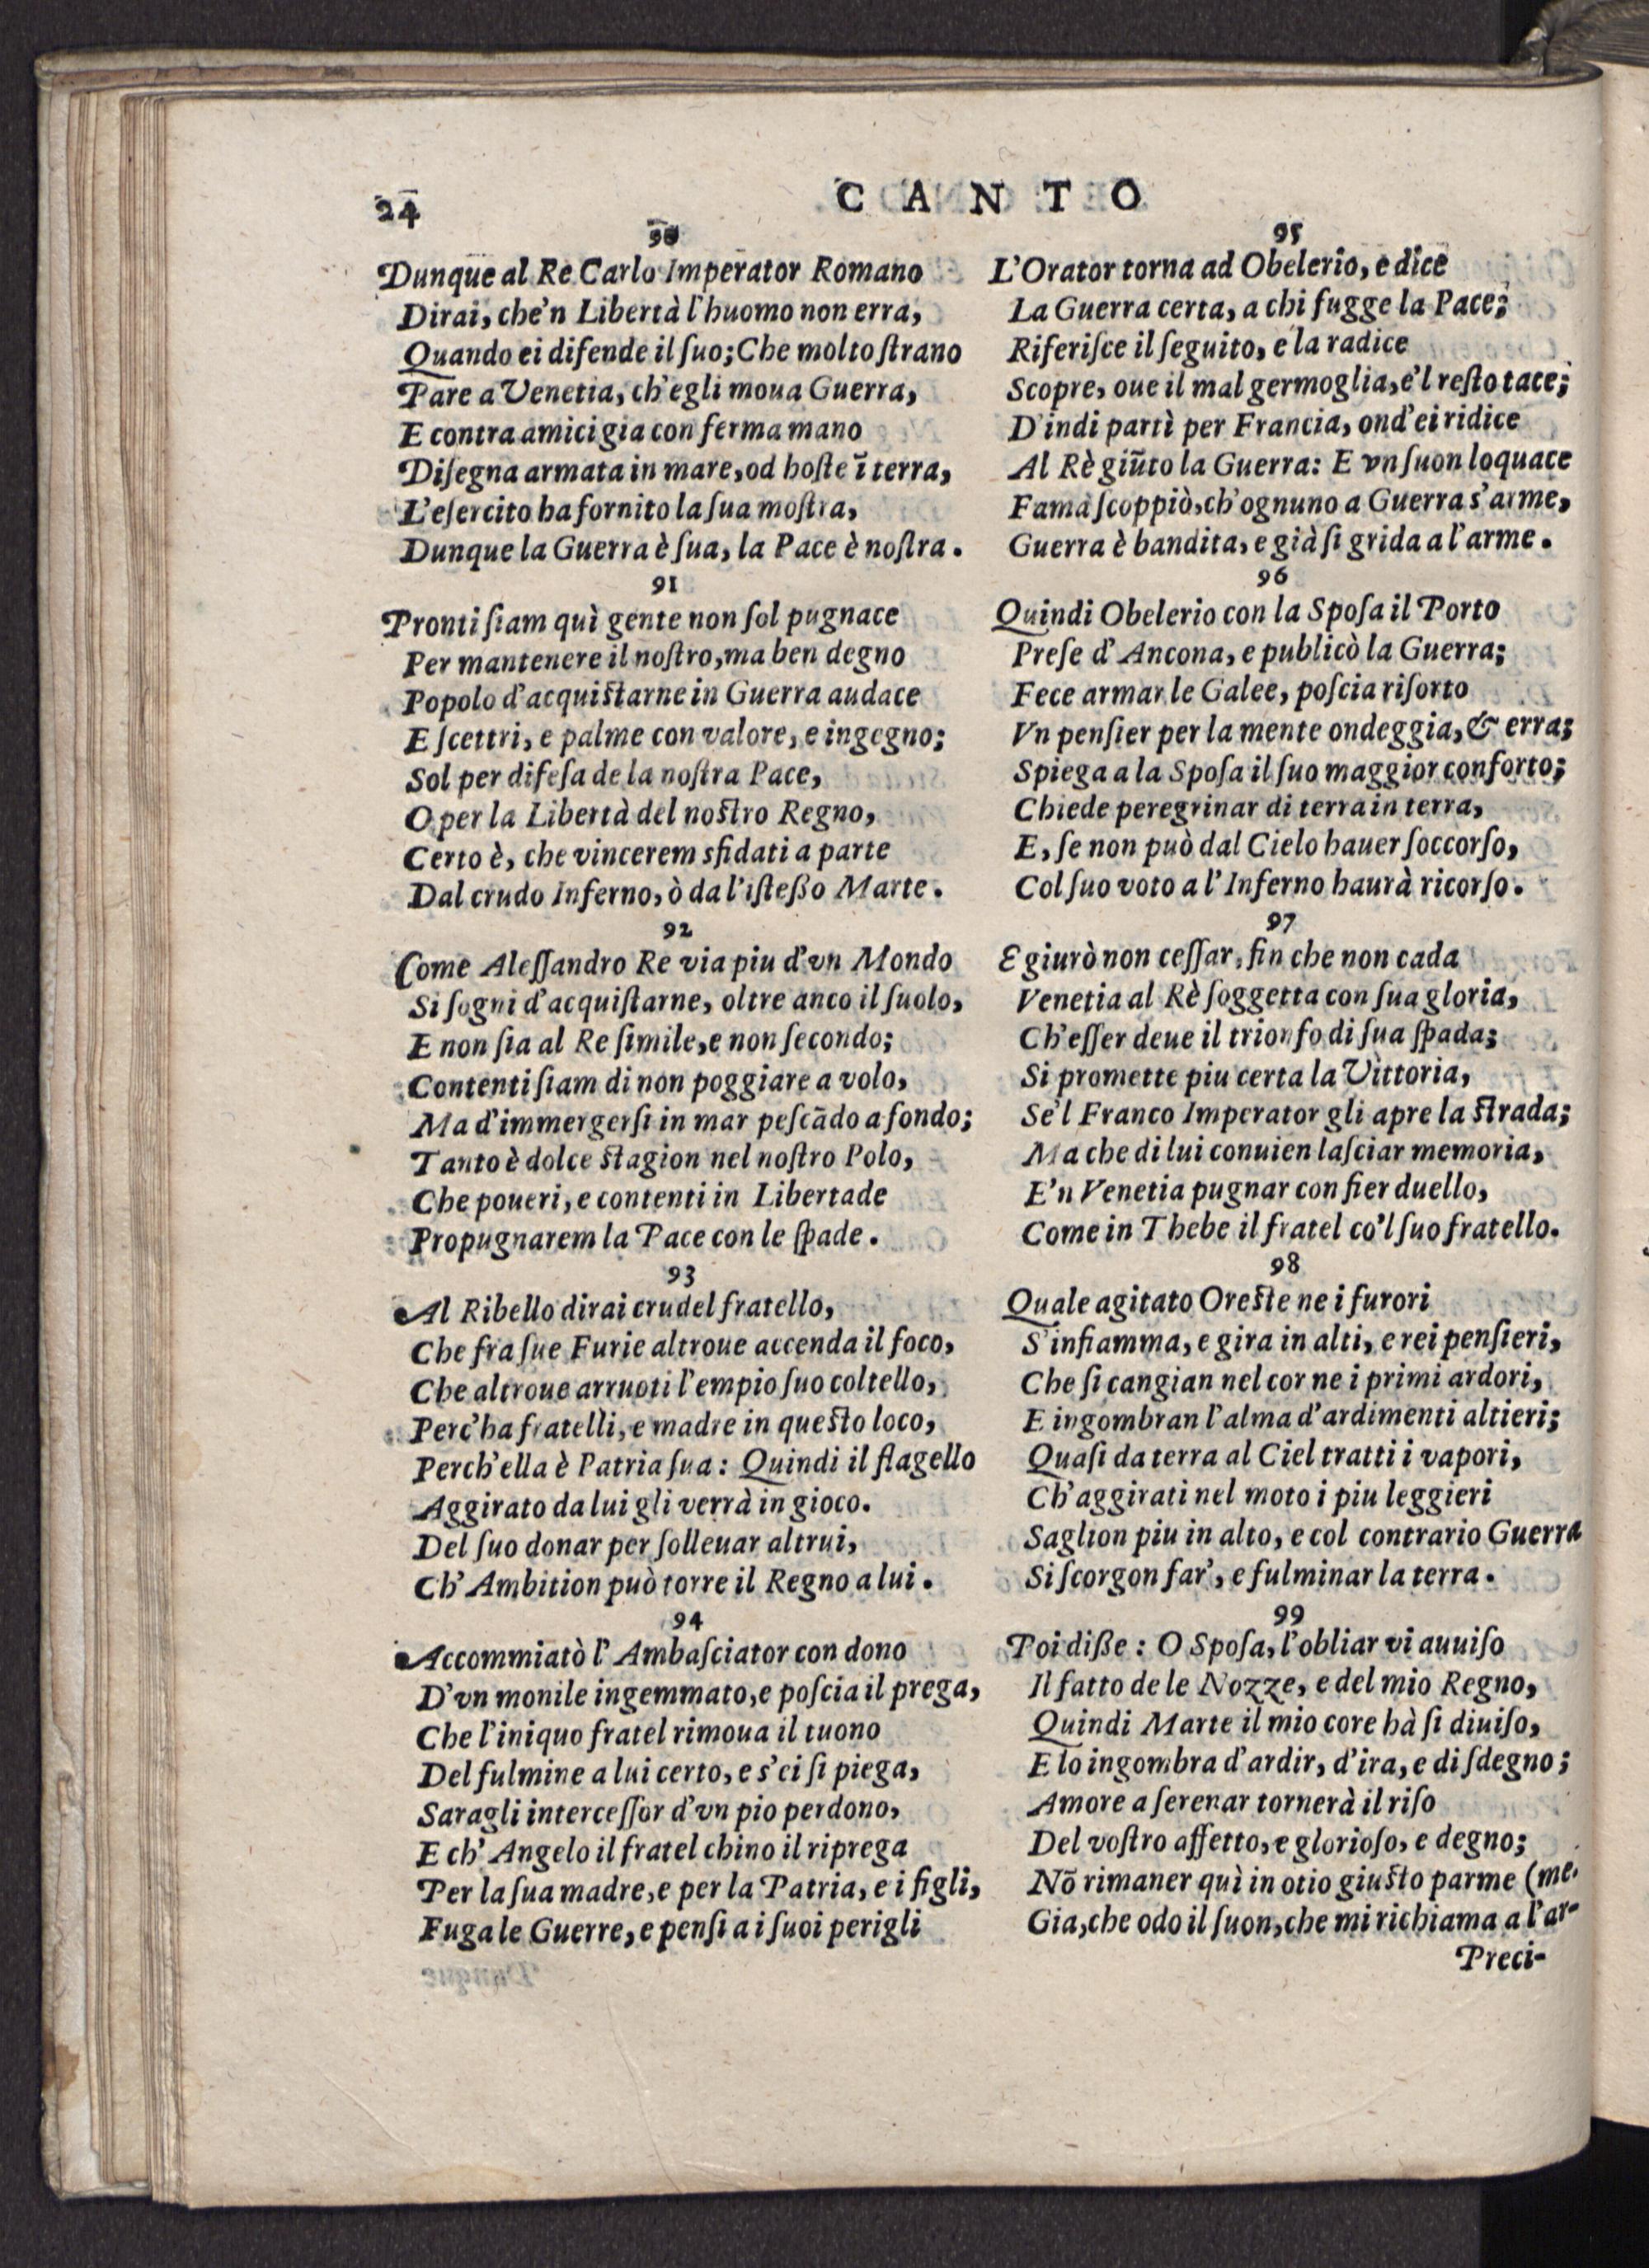 24
CANTO
90
Dunque al Re Carlo Imperator Romano
Dirai, che'n Libertà l'huomo non erra,
Quando ei difende il ſuo; Che molto ſtrano
Pare a Venetia, ch'egli moua Guerra,
E contra amici gia con ferma mano
Diſegna armata in mare, od hoſte ī terra,
L'eſercito ha fornito la ſua moſtra,
Dunque la Guerra è ſua, la Pace è noſtra.
91
Pronti ſiam quì gente non ſol pugnace
Per mantenere il noſtro, ma ben degno
Popolo d'acquiſtarne in Guerra audace
E ſcettri, e palme con valore, e ingegno;
Sol per difeſa de la noſtra Pace,
O per la Libertà del noſtro Regno,
Certo è, che vincerem sfidati a parte
Dal crudo Inferno, ò da l'iſteßo Marte.
92
Come Aleſſandro Re via piu d'vn Mondo
Si ſogni d'acquiſtarne, oltre anco il ſuolo,
E non ſia al Re ſimile, e non ſecondo;
Contenti ſiam di non poggiare a volo,
Ma d'immergerſi in mar peſcādo a fondo;
Tanto è dolce ſtagion nel noſtro Polo,
Che poueri, e contenti in Libertade
Propugnarem la Pace con le ſpade.
93
Al Ribello dirai crudel fratello,
Che fra ſue Furie altroue accenda il foco,
Che altroue arruoti l'empio ſuo coltello,
Perc'ha fratelli, e madre in queſto loco,
Perch'ella è Patria ſua: Quindi il flagello
Aggirato da lui gli verrà in gioco.
Del ſuo donar per ſolleuar altrui,
Ch'Ambition può torre il Regno a lui.
94
Accommiatò l'Ambaſciator con dono
D'vn monile ingemmato, e poſcia il prega,
Che l'iniquo fratel rimoua il tuono
Del fulmine a lui certo, e s'ei ſi piega,
Saragli interceſſor d'vn pio perdono,
E ch'Angelo il fratel chino il riprega
Per la ſua madre, e per la Patria, e i figli,
Fuga le Guerre, e penſi a i ſuoi perigli
95
L'Orator torna ad Obelerio, e dice
La Guerra certa, a chi fugge la Pace;
Riferiſce il ſeguito, e la radice
Scopre, oue il mal germoglia, e'l reſto tace;
D'indi partì per Francia, ond'ei ridice
Al Rè giūto la Guerra: E vn ſuon loquace
Fama ſcoppiò, ch'ognuno a Guerra s'arme,
Guerra è bandita, e già ſi grida a l'arme.
96
Quindi Obelerio con la Spoſa il Porto
Preſe d'Ancona, e publicò la Guerra;
Fece armar le Galee, poſcia riſorto
Vn penſier per la mente ondeggia, & erra;
Spiega a la Spoſa il ſuo maggior conforto;
Chiede peregrinar di terra in terra,
E, ſe non può dal Cielo hauer ſoccorſo,
Col ſuo voto a l'Inferno haurà ricorſo.
97
E giurò non ceſſar, fin che non cada
Venetia al Rè ſoggetta con ſua gloria,
Ch'eſſer deue il trionfo di ſua ſpada;
Si promette piu certa la Vittoria,
Se'l Franco Imperator gli apre la ſtrada;
Ma che di lui conuien laſciar memoria,
E'n Venetia pugnar con fier duello,
Come in Thebe il fratel co'l ſuo fratello.
98
Quale agitato Oreſte ne i furori
S'infiamma, e gira in alti, e rei penſieri,
Che ſi cangian nel cor ne i primi ardori,
E ingombran l'alma d'ardimenti altieri;
Quaſi da terra al Ciel tratti i vapori,
Ch'aggirati nel moto i piu leggieri
Saglion piu in alto, e col contrario Guerra
Si ſcorgon far', e fulminar la terra.
99
Poi diße: O Spoſa, l'obliar vi auuiſo
Il fatto de le Nozze, e del mio Regno,
Quindi Marte il mio core hà ſi diuiſo,
E lo ingombra d'ardir, d'ira, e di ſdegno;
Amore a ſerenar tornerà il riſo
Del voſtro affetto, e glorioſo, e degno;
Nō rimaner quì in otio giuſto parme (me.
Gia, che odo il ſuon, che mi richiama a l'ar-
Preci-